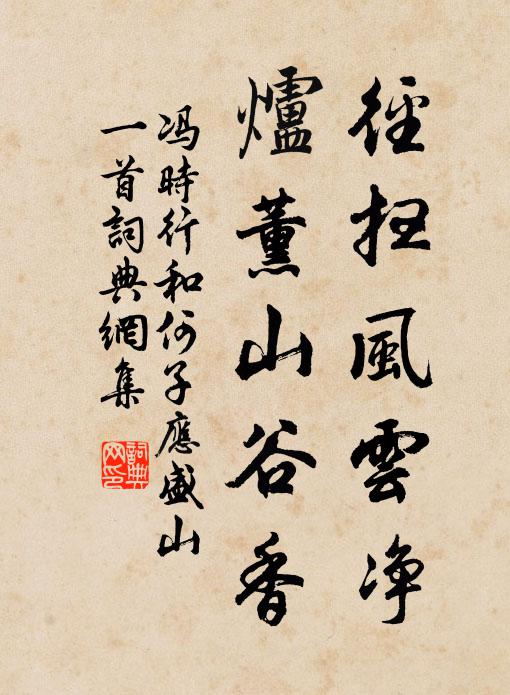 徑扫風雲净
爐薰山谷香
冯時行和何子應盛山
一首詞典網集
詞典网印